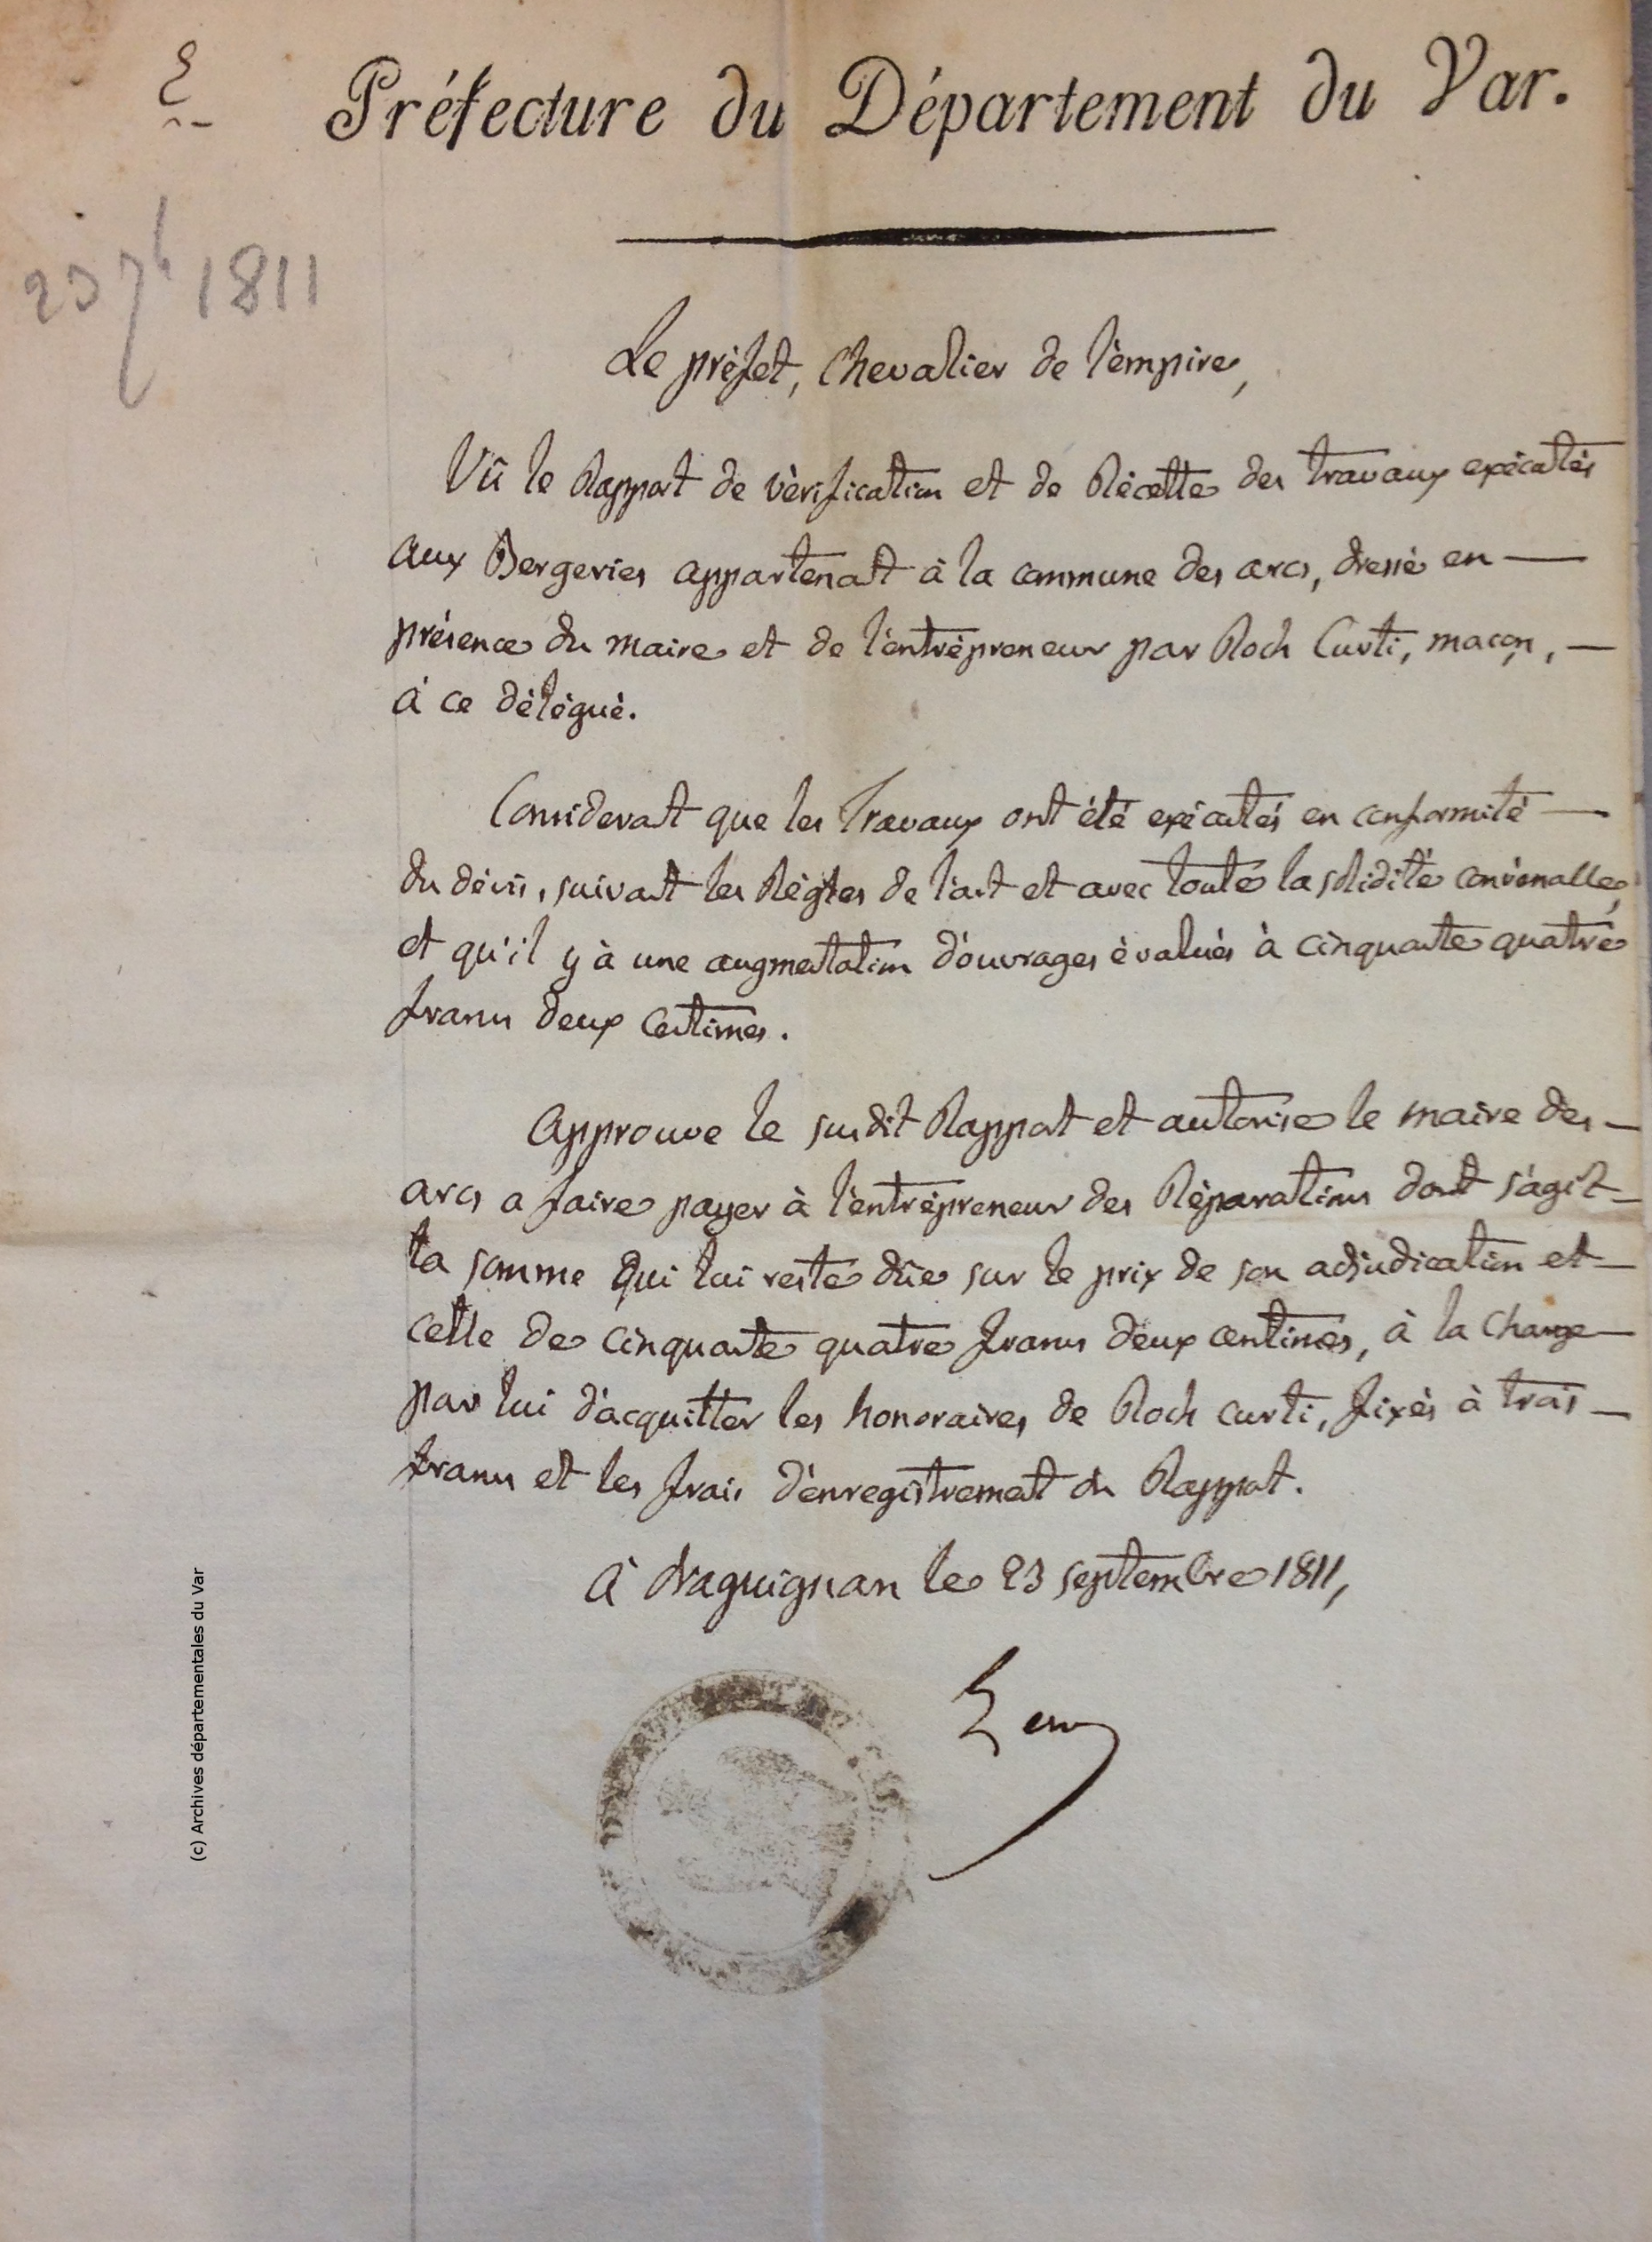 Préfecture du Département du Var.
23 7b 1811
Le préfet, Chevalier de l'émpire,
Vû le Rapport de vérification et de Récette des travaux exécutés
aux Bergeries appartenant à la commune des arcs, dressé en
présence du maire et de l'entrépreneur par Roch Curti, maçon,
à ce délégué.
Considerant que les Travaux ont été exécutés en conformité
du dévis, suivant les Règles de l'art et avec toute la solidité convénable,
et qu'il y à une augmentation d'ouvrages évalués à cinquante quatre
francs deux Centimes.
Approuve le susdit Rapport et autorise le maire des
arcs a faire payer à l'entrépreneur des Réparations dont s'agit
la somme Qui lui reste düe sur le prix de son adjudication et
celle de cinquante quatre francs deux centimes, à la charge
par lui d'acquitter les honoraires de Roch curti, fixés à trois
francs et les frais d'énregistrement du Rapport.
à draguignan le 23 septembre 1811,
(c) Archives départementales du Var